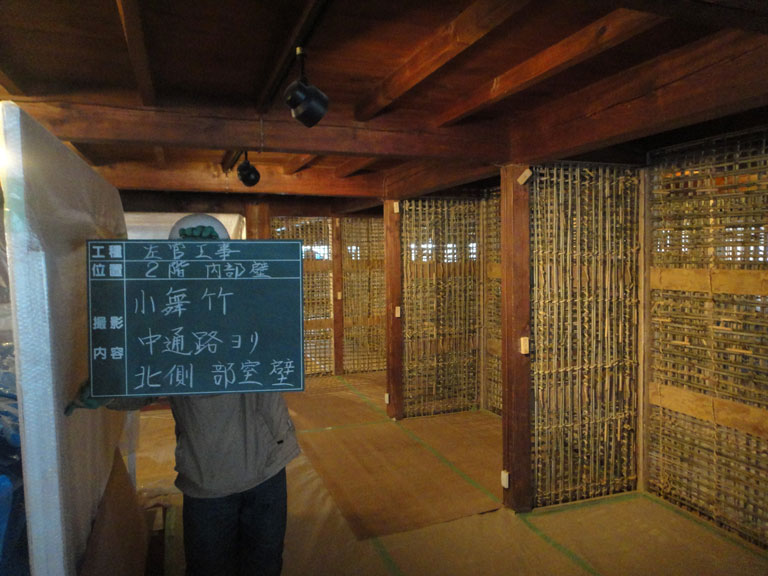 工種 左官工事
位置 2階 内部壁
撮影内容 小舞竹
中通路ヨリ
北側 部室壁